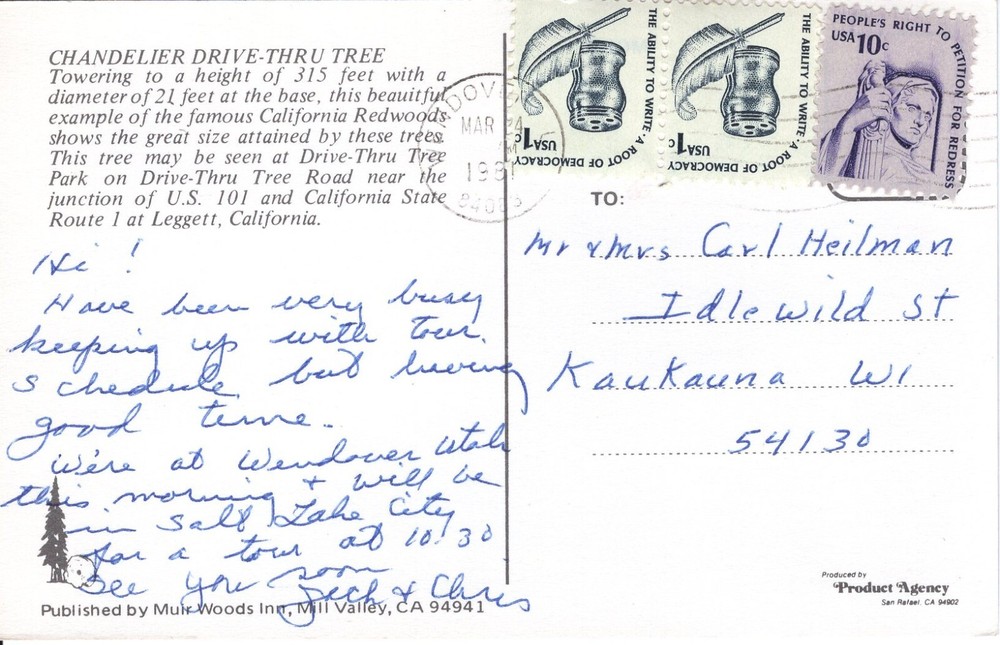 CHANDELIER DRIVE-THRU TREE
Towering to a height of 315 feet with a
diameter of 21 feet at the base, this beauitful
example of the famous California Redwoods
shows the great size attained by these trees.
This tree may be seen at Drive-Thru Tree
Park on Drive-Thru Tree Road near the
junction of U.S. 101 and California State
Route 1 at Leggett, California.
Hi !
Have been very busy
keeping up with tour
schedule but having
good time.
We're at Wendover Utah
this morning & will be
in Salt Lake City
for a tour at 10:30
See you soon
& Chris
Published by Muir Woods Inn, Mill Valley, CA 94941
THE ABILITY TO WRITE·A ROOT OF DEMOCRACY
USA 1c
THE ABILITY TO WRITE·A ROOT OF DEMOCRACY
USA 1c
PEOPLE'S RIGHT TO PETITION FOR REDRESS
USA 10c
MAR 24
TO:
Mr & Mrs Carl Heilman
Idlewild St
Kaukauna WI
54130
Produced by
Product Agency
San Rafael, CA 94902